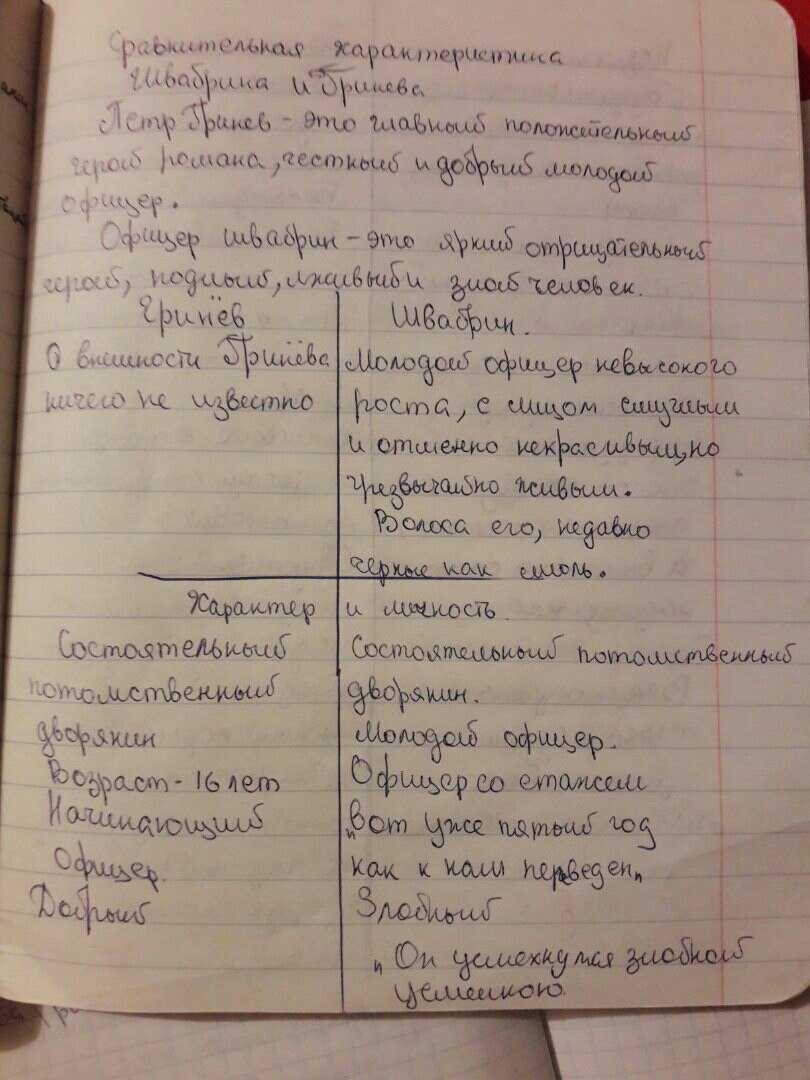 Сравнительная характеристика
Швабрина и Гринева
Пётр Гринев - это главный положительный
герой романа, честный и добрый молодой
офицер.
Офицер швабрин - это яркий отрицательный
герой, подлый, лживый и злой человек.
Гринёв Швабрин.
О внешности Гринёва Молодой офицер невысокого
ничего не известно роста, с лицом смуглым
и отменно некрасивым, но
чрезвычайно живым.
Волоса его, недавно
черные как смоль.
Характер и личность
Состоятельный Состоятельный потомственный
потомственный дворянин.
дворянин Молодой офицер.
Возраст - 16 лет Офицер со стажем
Начинающий "Вот уже пятый год
Офицер. как к нам переведен"
Добрый Злобный
"Он усмехнулся злобной
усмешкою.